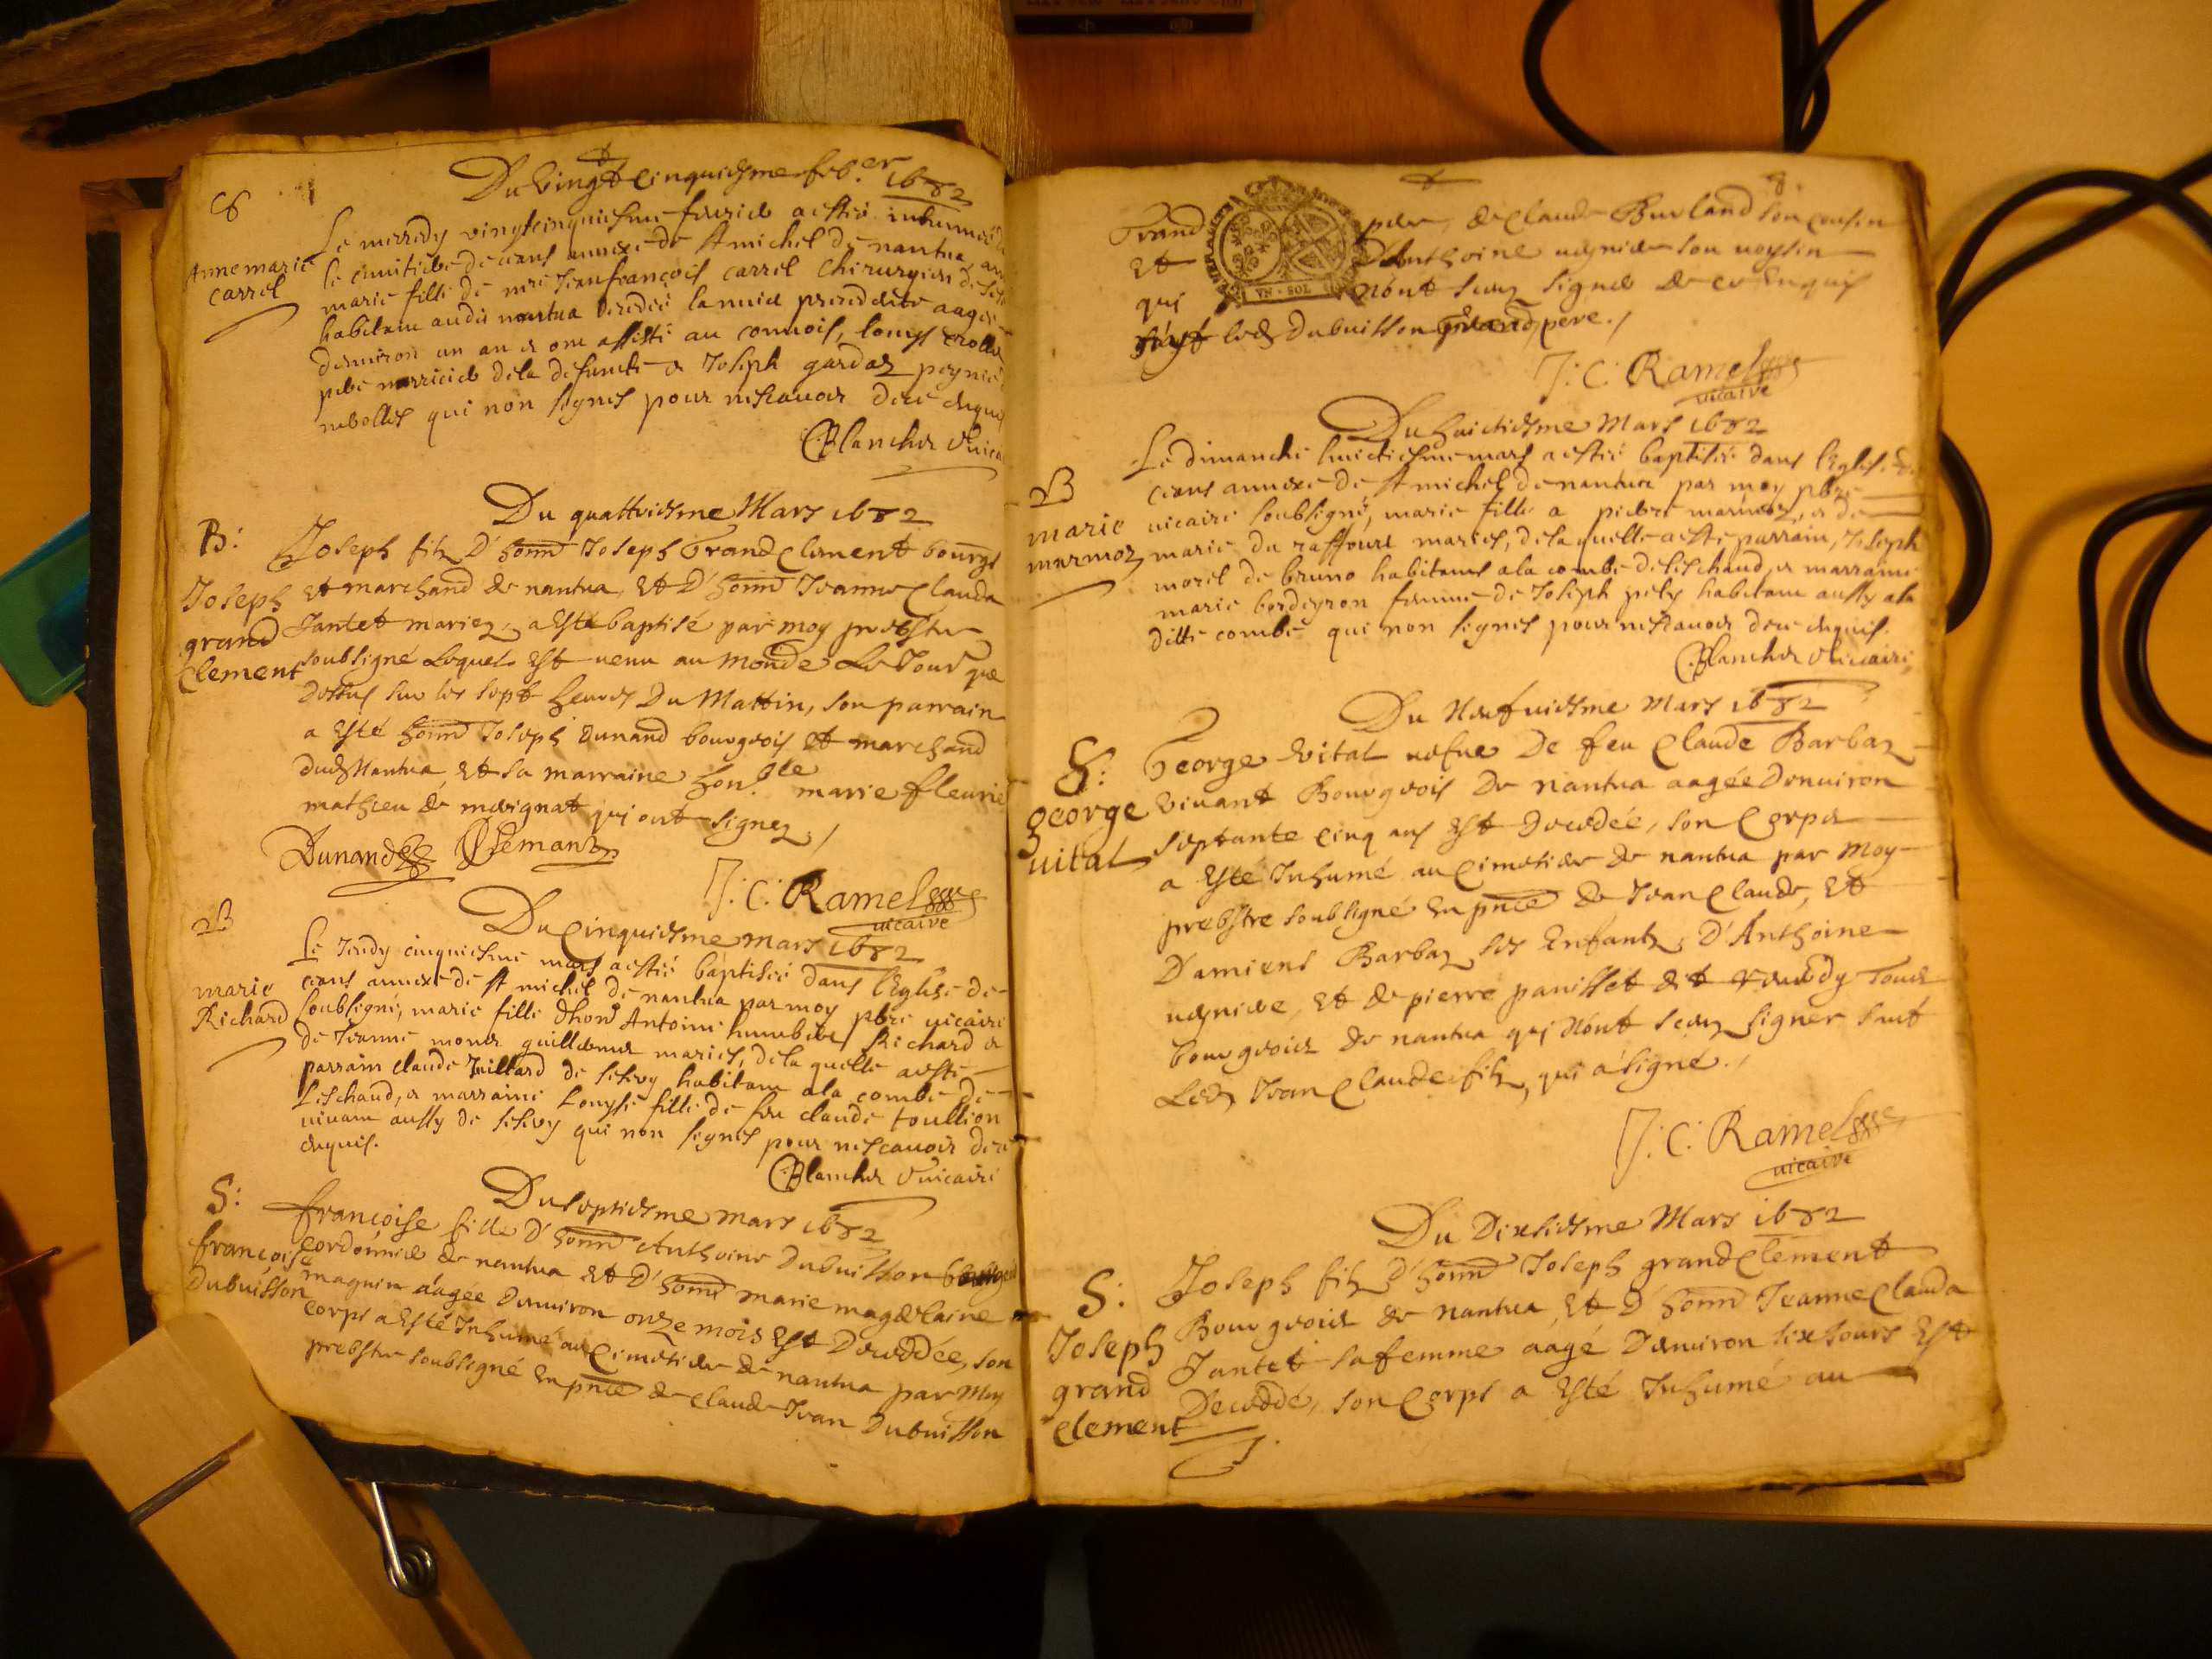 Du vingt cinquiesme feb.er 1682
S
Anne marie
Carrel
Le mercredy vingtcinquiesme febvrier a esté inhumée da
le cimitiere de ceans annexe de st michel de nantua, an
marie fille de mre Jean françois Carrel Chirurgien de
habitant audit nantua decedée la nuict precedente aagée
denviron un an et ont assisté au convois, Louys
pere nourricier dela defuncte et Joseph gardaz
qui non signes pour nescavoir de ce enquis
Blanchet Vicai
Du quattriesme Mars 1682
B:
Joseph
grand
Clement
Joseph filz D'honn Joseph Grand Clement bourgs
Et marchand de nantua, Et D'honn Jeanne Clauda
Jantet mariez, a Esté baptisé par moy prebstre
soubsigné Lequel Est venu au monde Le Jour que
dessus sur les sept heures Du Mattin, son parrain
a Esté honn Joseph Dunand bourgeois Et marchand
dud Nantua, Et sa marraine hon.ble marie fleurie
mathieu de meignat qui ont signez /
Dunand Clemant
J: C: Ramel
vicaire
Du Cinquiesme mars 1682
B
marie
Richard
Le Jeudy cinquiesme mars a esté baptisée dans l'Eglise de
ceans annexe de st michel de nantua par moy pbre vicaire
soubsigné, marie fille dhon Antoine humbert Richard et
de Jeanne monet guillermet mariés, dela quelle a esté
parrain claude Juillard de habitant a la combe de
Leschaud, et marraine Louyse fille de feu claude toullion
vivant aussy de qui non signes pour nescavoir de ce
enquis.
Blanchet Vicaire
Du septiesme mars 1682
S:
francoise
Dubuisson
francoise fille D'honn Anthoine Dubuisson bourgeois
cordonnier de nantua Et D'honn marie magdelaine
maguin aagée Denviron onze mois Est Decedée, son
corps a Esté Inhumé au Cimetiere de nantua par Moy
prebstre soubsigné En pnce de Claude Jean Dubuisson
8.
Grand pere, de Claude Burland son cousin
Et D'Anthoine son voysin
qui n'ont sceu signer de ce Enquis
led Dubuisson grand pere. /
VN · SOL
J: C: Ramel
vicaire
Du huictiesme Mars 1682
B
marie
marmoz
Le dimanche huictiesme mars a esté baptisée dans l'Eglise de
ceans annexe de st michel de nantua par moy pbre
vicaire soubsigné, marie fille a pierre marmoz, et de
marie du raffour mariés, dela quelle a esté parrain, Joseph
morel de bruno habitant a la combe de leschaud, et marraine
marie bordeyron femme de Joseph habitant aussy a la
ditte combe qui non signes pour nescavoir de ce enquis.
Blanchet Vicaire
Du Neufuiesme Mars 1682
S:
george
vital
George Vital vefve De feu Claude Barbaz
vivant Bourgeois De nantua aagée Denviron
septante cinq ans Est Decedée, son Corps
a Esté Inhumé au Cimetiere de nantua par Moy
prebstre soubsigné En pnce de Jean Claude, Et
Damiens Barbaz ses Enfantz, D'Anthoine
Et de pierre panisset dit Tous
bourgeois de nantua qui N'ont sceu signer sauf
Led Jean Claude filz, qui a signé. /
J: C: Ramel
vicaire
Du Dixhiesme Mars 1682
S:
Joseph
grand
Clement
Joseph filz D'honn Joseph grand Clement
Bourgeois de nantua, Et D'honn Jeanne Clauda
Jantet sa femme aagé Denviron six Jours Est
Decedé, son Corps a Esté Inhumé au